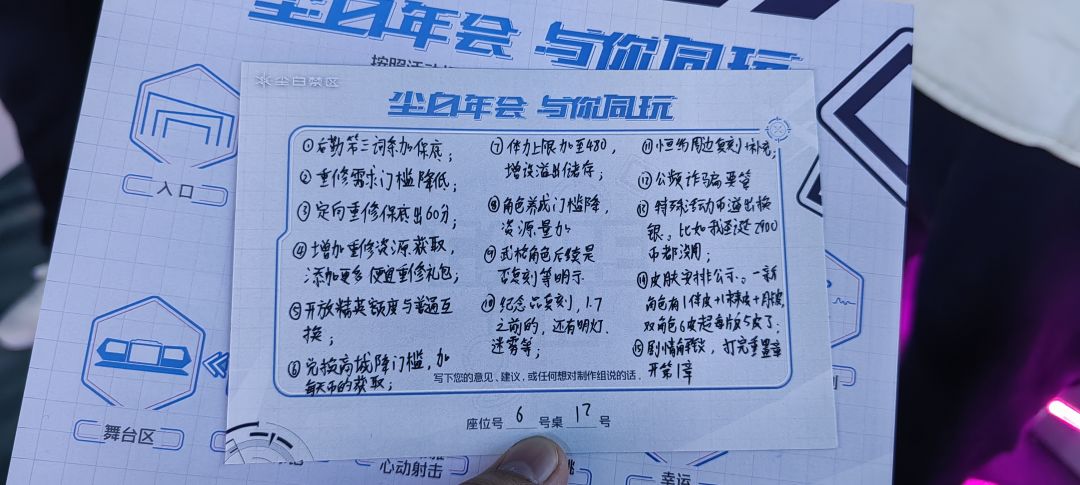 尘白年会 与你同玩
按照活动
入口
舞台区
心动射击
幸运
尘白禁区
尘白年会 与你同玩
①后勤第三词条加保底;
②重修需求门槛降低;
③定向重修保底出60分;
④增加重修资源获取,
添加更多便宜重修礼包;
⑤开放精英额度与普通互
换;
⑥兑换商城降门槛,加
每天币的获取;
⑦体力上限加至480,
增设溢出储存;
⑧角色养成门槛降,
资源量加
⑨武器角色后续是
否复刻等明示
⑩纪念品复刻,1.7
之前的,还有明灯.
迷雾等;
⑪小恒物周边复刻补充;
⑫公频诈骗要管
⑬特殊活动币溢出换
银。比如我还溢2900
币都没用;
⑭皮肤安排公示。一新
角色有1伴皮+1棘皮+月皮,
双角色6皮起每版5皮了;
⑮剧情解锁,打完重置章
开第1章
写下您的意见、建议,或任何想对制作组说的话.
座位号 6 号桌 17 号